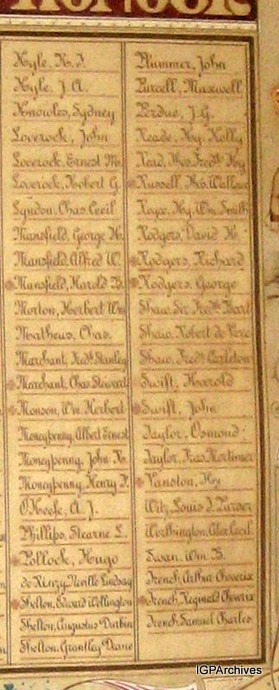 HONOUR
Kyle, K. J.
Kyle, J. A.
Knowles, Sydney
Loverock, John
Loverock, Ernest M.
Loverock, Robert G.
Lyndon, Chas. Cecil
Mansfield, George H.
Mansfield, Alfred W.
Mansfield, Harold B.
Morton, Herbert Wm
Matheus, Chas.
Marchant, Fredk Stanley
Marchant, Chas. Steward
Monson, Wm. Herbert
Moneypenny, Albert Ernest
Moneypenny, John
Moneypenny, Henry
O'Keefe, A. J.
Phillips, Stearne
Pollock, Hugo
de Renzy, Neville Lindsay
Shelton, Edward Wellington
Shelton, Augustus Durbin
Shelton, Grantley
Plummer, John
Purcell, Maxwell
Perdue, J. G.
Reade, Hy. Kelly
Read, Thos. Fredk Hy
Russell, Thos. Wallace
Hy. Wm. Smith
Rodgers, David H.
Rodgers, Richard
Rodgers, George
Shaw, Sir Fredk Bart
Shaw, Robert de Vere
Shaw, Fredk Carleton
Swift, Harrold
Swift, John
Taylor, Osmond
Taylor, Fras. Mortimer
Vanston, Hy
Louis J.
Worthington, Cecil
Swan, Wm. B.
French, Arthur Chenevix
French, Reginald Chenevix
French, Samuel Charles
IGPArchives